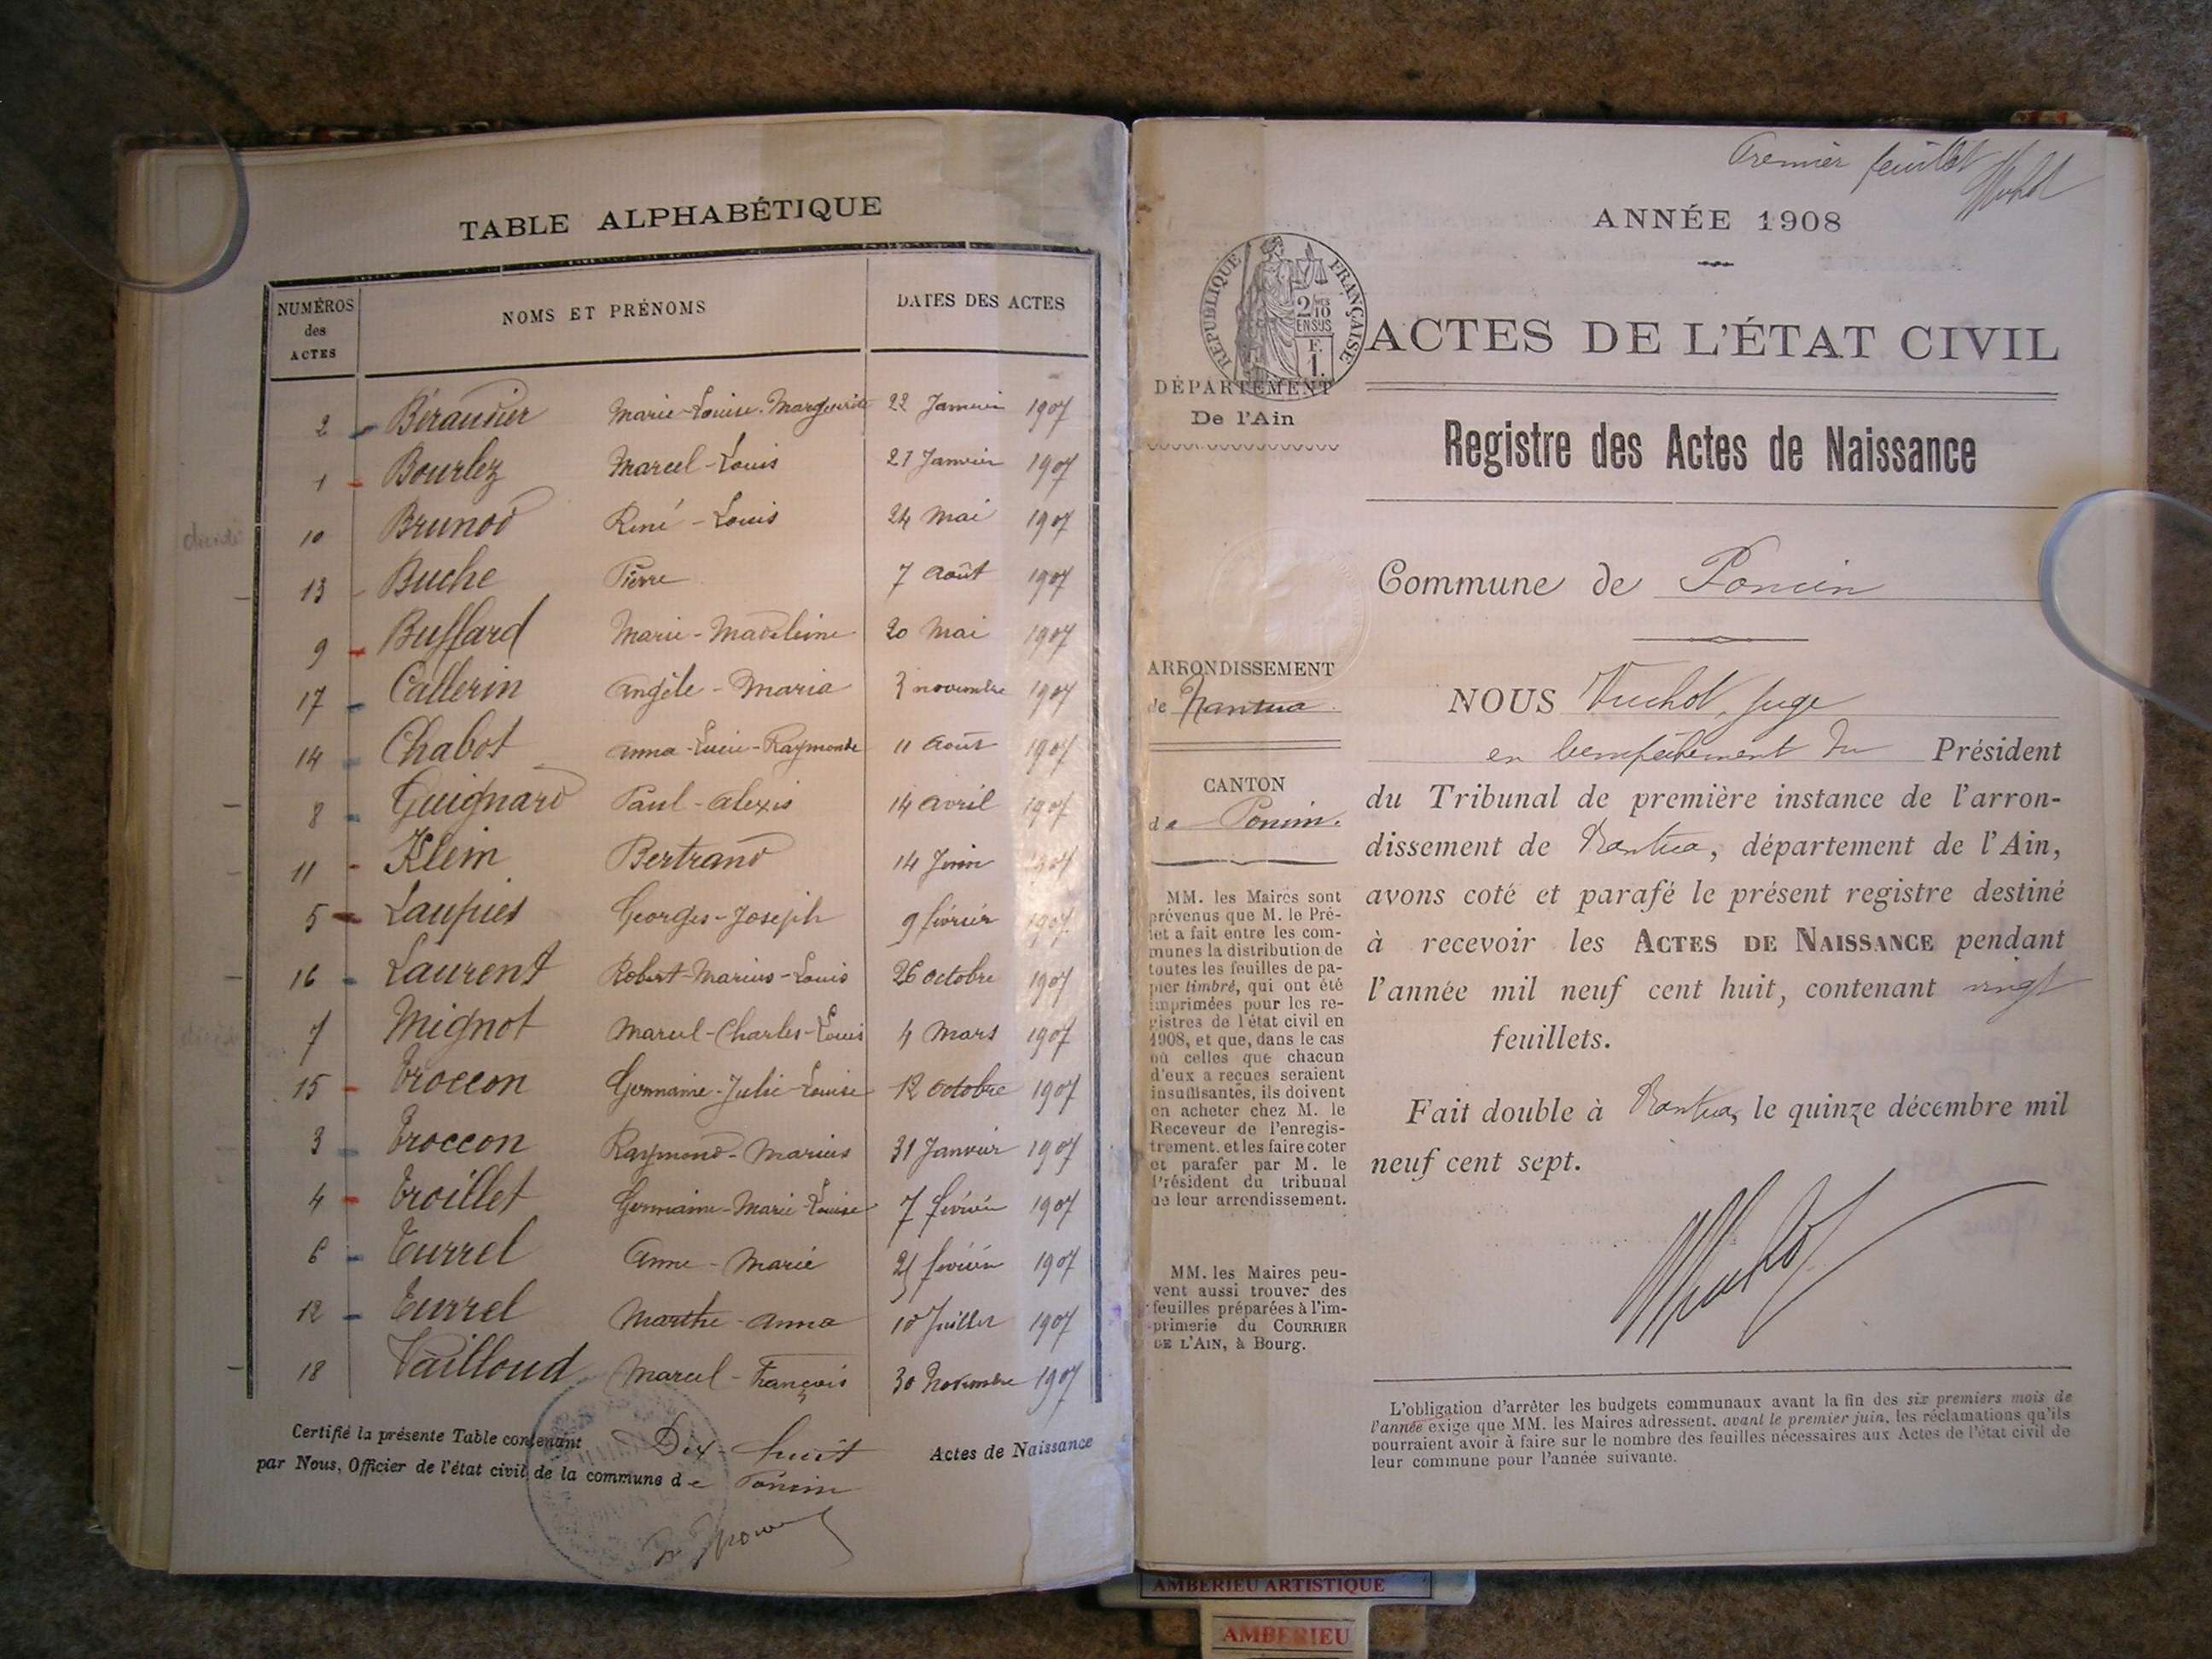 TABLE ALPHABÉTIQUE
NUMÉROS
des
ACTES
NOMS ET PRÉNOMS
DATES DES ACTES
2 Béraudier Marie-Louise-Marguerite 22 Janvier 1907
1 Bourlez Marcel-Louis 21 Janvier 1907
10 Brunod René-Louis 24 Mai 1907
13 Buche Pierre 7 Août 1907
9 Buffard Marie-Madeleine 20 Mai 1907
17 Callerin Angèle-Maria 3 novembre 1907
14 Chabot Anna-Lucie-Raymonde 11 Août 1907
8 Guignard Paul-Alexis 14 Avril 1907
11 Klein Bertrand 14 Juin 1907
5 Laupies Georges-Joseph 9 février 1907
16 Laurent Robert-Marius-Louis 26 octobre 1907
7 Mignot Marcel-Charles-Louis 4 Mars 1907
15 Troccon Germaine-Julie-Louise 12 octobre 1907
3 Troccon Raymond-Marius 31 Janvier 1907
4 Troillet Germaine-Marie-Louise 7 février 1907
6 Turrel Anne-Marie février 1907
12 Turrel Marthe-Anna 10 Juillet 1907
18 Vailloud Marcel-François 30 Novembre 1907
Certifié la présente Table contenant Dix-huit Actes de Naissance
par Nous, Officier de l'état civil de la commune de Poncin
Premier feuillet
ANNÉE 1908
RÉPUBLIQUE FRANÇAISE
2/10
EN SUS
F.
1.
ACTES DE L'ÉTAT CIVIL
DÉPARTEMENT
De l'Ain
Registre des Actes de Naissance
Commune de Poncin
ARRONDISSEMENT
de Nantua
CANTON
de Poncin.
MM. les Maires sont
prévenus que M. le Pré-
fet a fait entre les com-
munes la distribution de
toutes les feuilles de pa-
pier timbré, qui ont été
imprimées pour les re-
gistres de l'état civil en
1908, et que, dans le cas
où celles que chacun
d'eux a reçues seraient
insuffisantes, ils doivent
en acheter chez M. le
Receveur de l'enregis-
trement, et les faire coter
et parafer par M. le
Président du tribunal
de leur arrondissement.
MM. les Maires peu-
vent aussi trouver des
feuilles préparées à l'im-
primerie du COURRIER
DE L'AIN, à Bourg.
NOUS Vuchot, Juge
en l'empêchement du Président
du Tribunal de première instance de l'arron-
dissement de Nantua, département de l'Ain,
avons coté et parafé le présent registre destiné
à recevoir les ACTES DE NAISSANCE pendant
l'année mil neuf cent huit, contenant vingt
feuillets.
Fait double à Nantua, le quinze décembre mil
neuf cent sept.
L'obligation d'arrêter les budgets communaux avant la fin des six premiers mois de
l'année exige que MM. les Maires adressent, avant le premier juin, les réclamations qu'ils
pourraient avoir à faire sur le nombre des feuilles nécessaires aux Actes de l'état civil de
leur commune pour l'année suivante.
AMBERIEU ARTISTIQUE
AMBERIEU